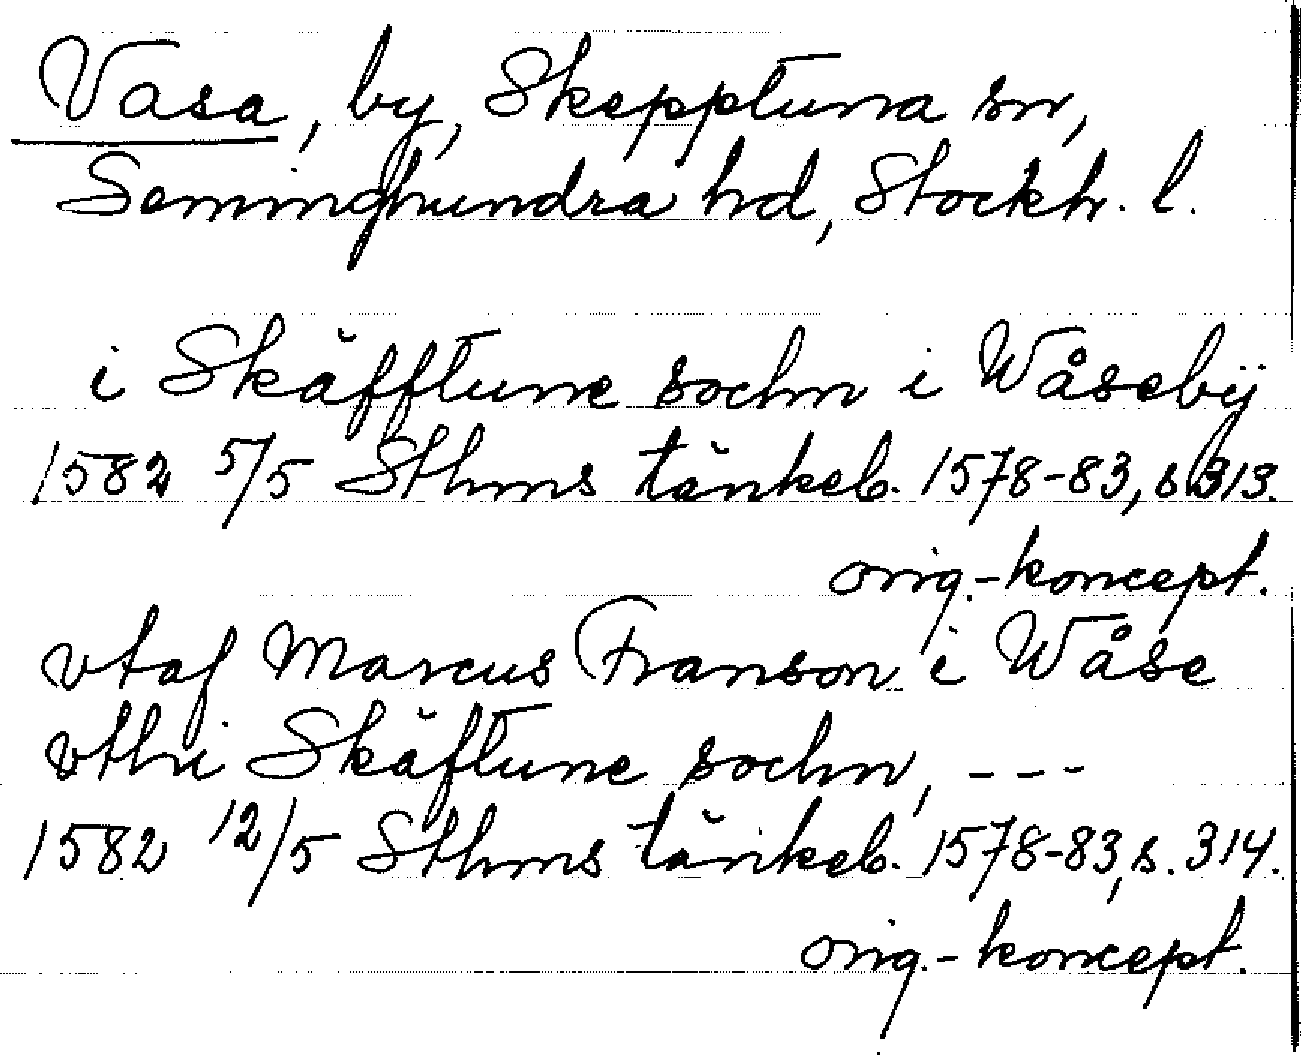 Vasa, by, Skepptuna sn,
Seminghundra hd, Stockh. l.
i Skäfftune sochn i Wåsebÿ
1582 5/5 Sthms tänkeb. 1578-83, s. 313.
orig.-koncept.
vtaf Marcus Franson i Wåse
vthi Skäftune sochn, ---
1582 12/5 Sthms tänkeb. 1578-83, s. 314.
orig.-koncept.